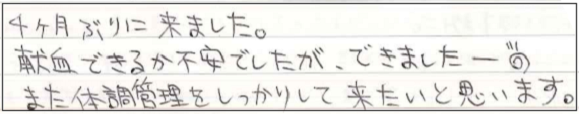 4ヶ月ぶりに来ました。
献血できるか不安でしたが、できましたー
また体調管理をしっかりして来たいと思います。